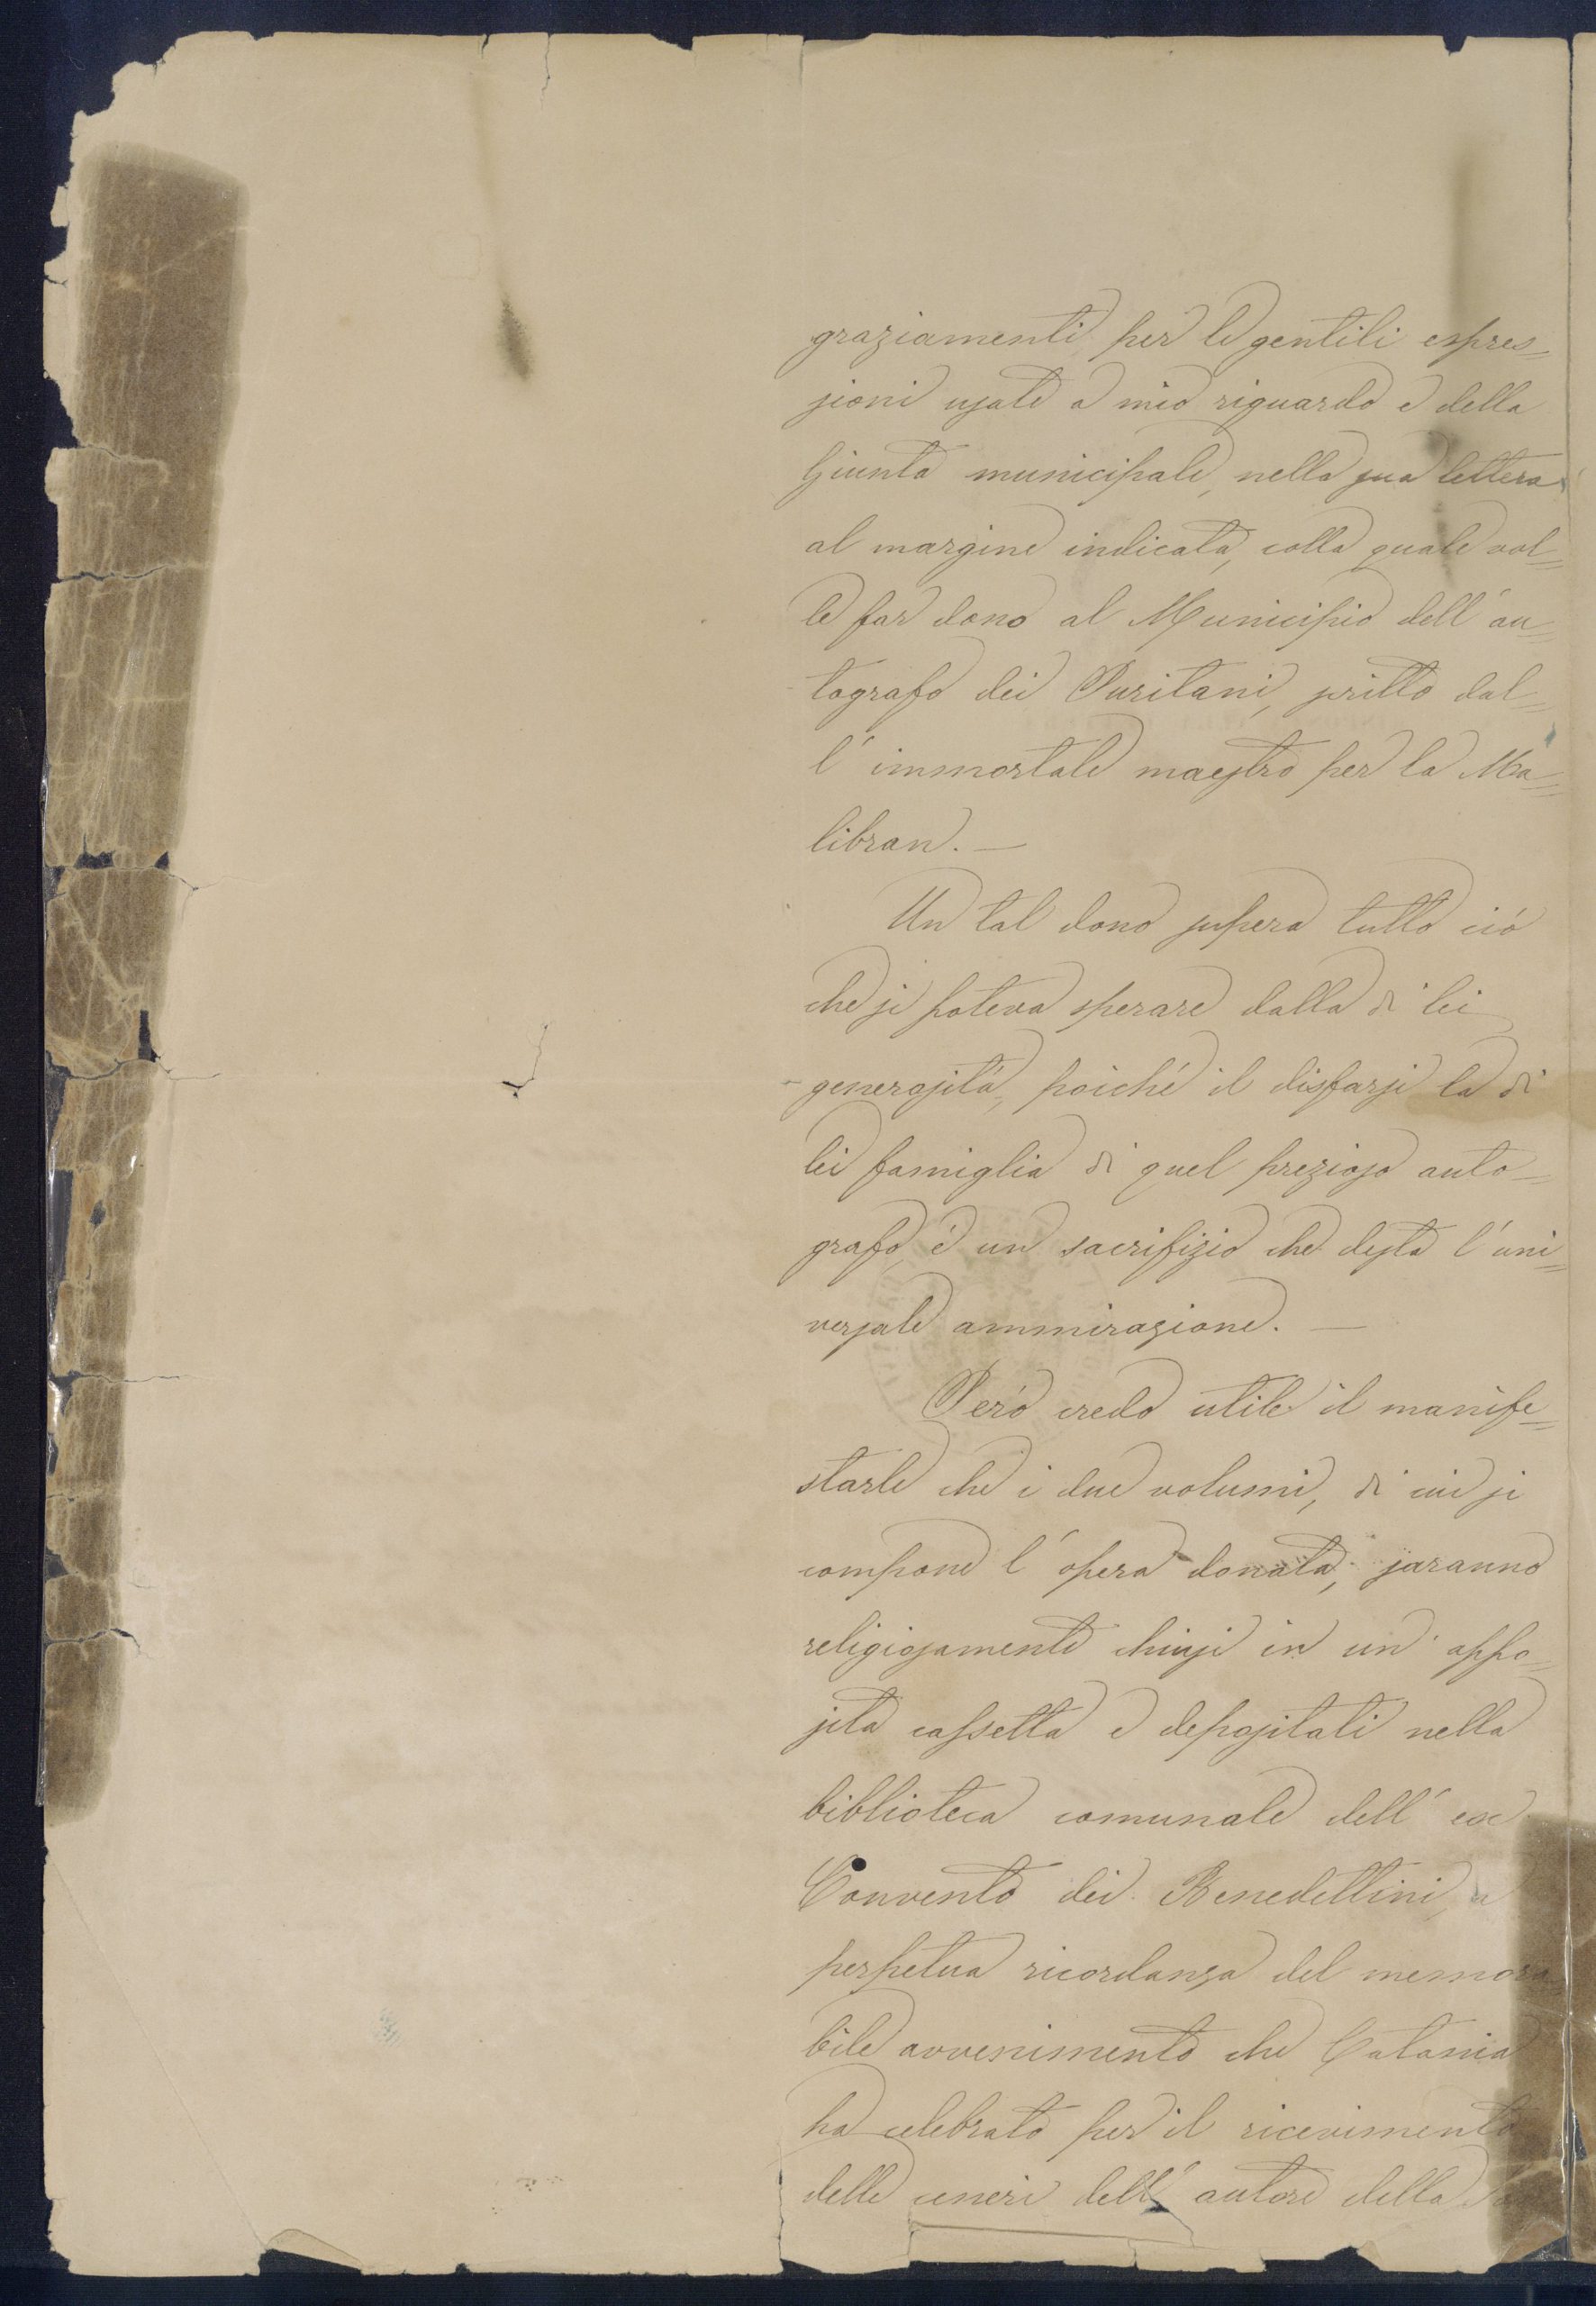 graziamenti per le gentili espres=
sioni usate a mio riguardo e della
Giunta municipale, nella sua lettera
al margine indicata, colla quale vol=
le far dono al Municipio dell'au=
tografo dei Puritani, scritto dal=
l'immortale maestro per la Ma=
libran. —
Un tal dono supera tutto ciò
che si poteva sperare dalla di lei
generosità, poiché il disfarsi la di
lei famiglia di quel prezioso auto=
grafo, è un sacrifizio che desta l'uni=
versale ammirazione. —
Però credo utile il manife=
starle che i due volumi, di cui si
compone l'opera donata, saranno
religiosamente chiusi in un' appo=
sita cassetta e depositati nella
biblioteca comunale dell' ex
Convento dei Benedettini, a
perpetua ricordanza del memora
bile avvenimento che Catania
ha celebrato per il ricevimento
delle ceneri dell' autore della